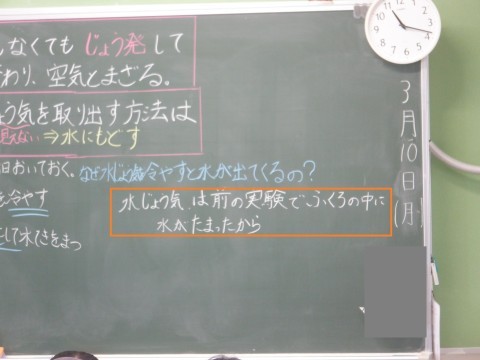 しなくても じょう発 して
わり、空気とまざる。
う気を取り出す方法は
見えない ⇒ 水にもどす
日おいておく。
なぜ水じょう気冷やすと水が出てくるの?
を冷やす
水じょう気 は前の実験でふくろの中に
水がたまったから
して水てきをまつ
3月10日(月)